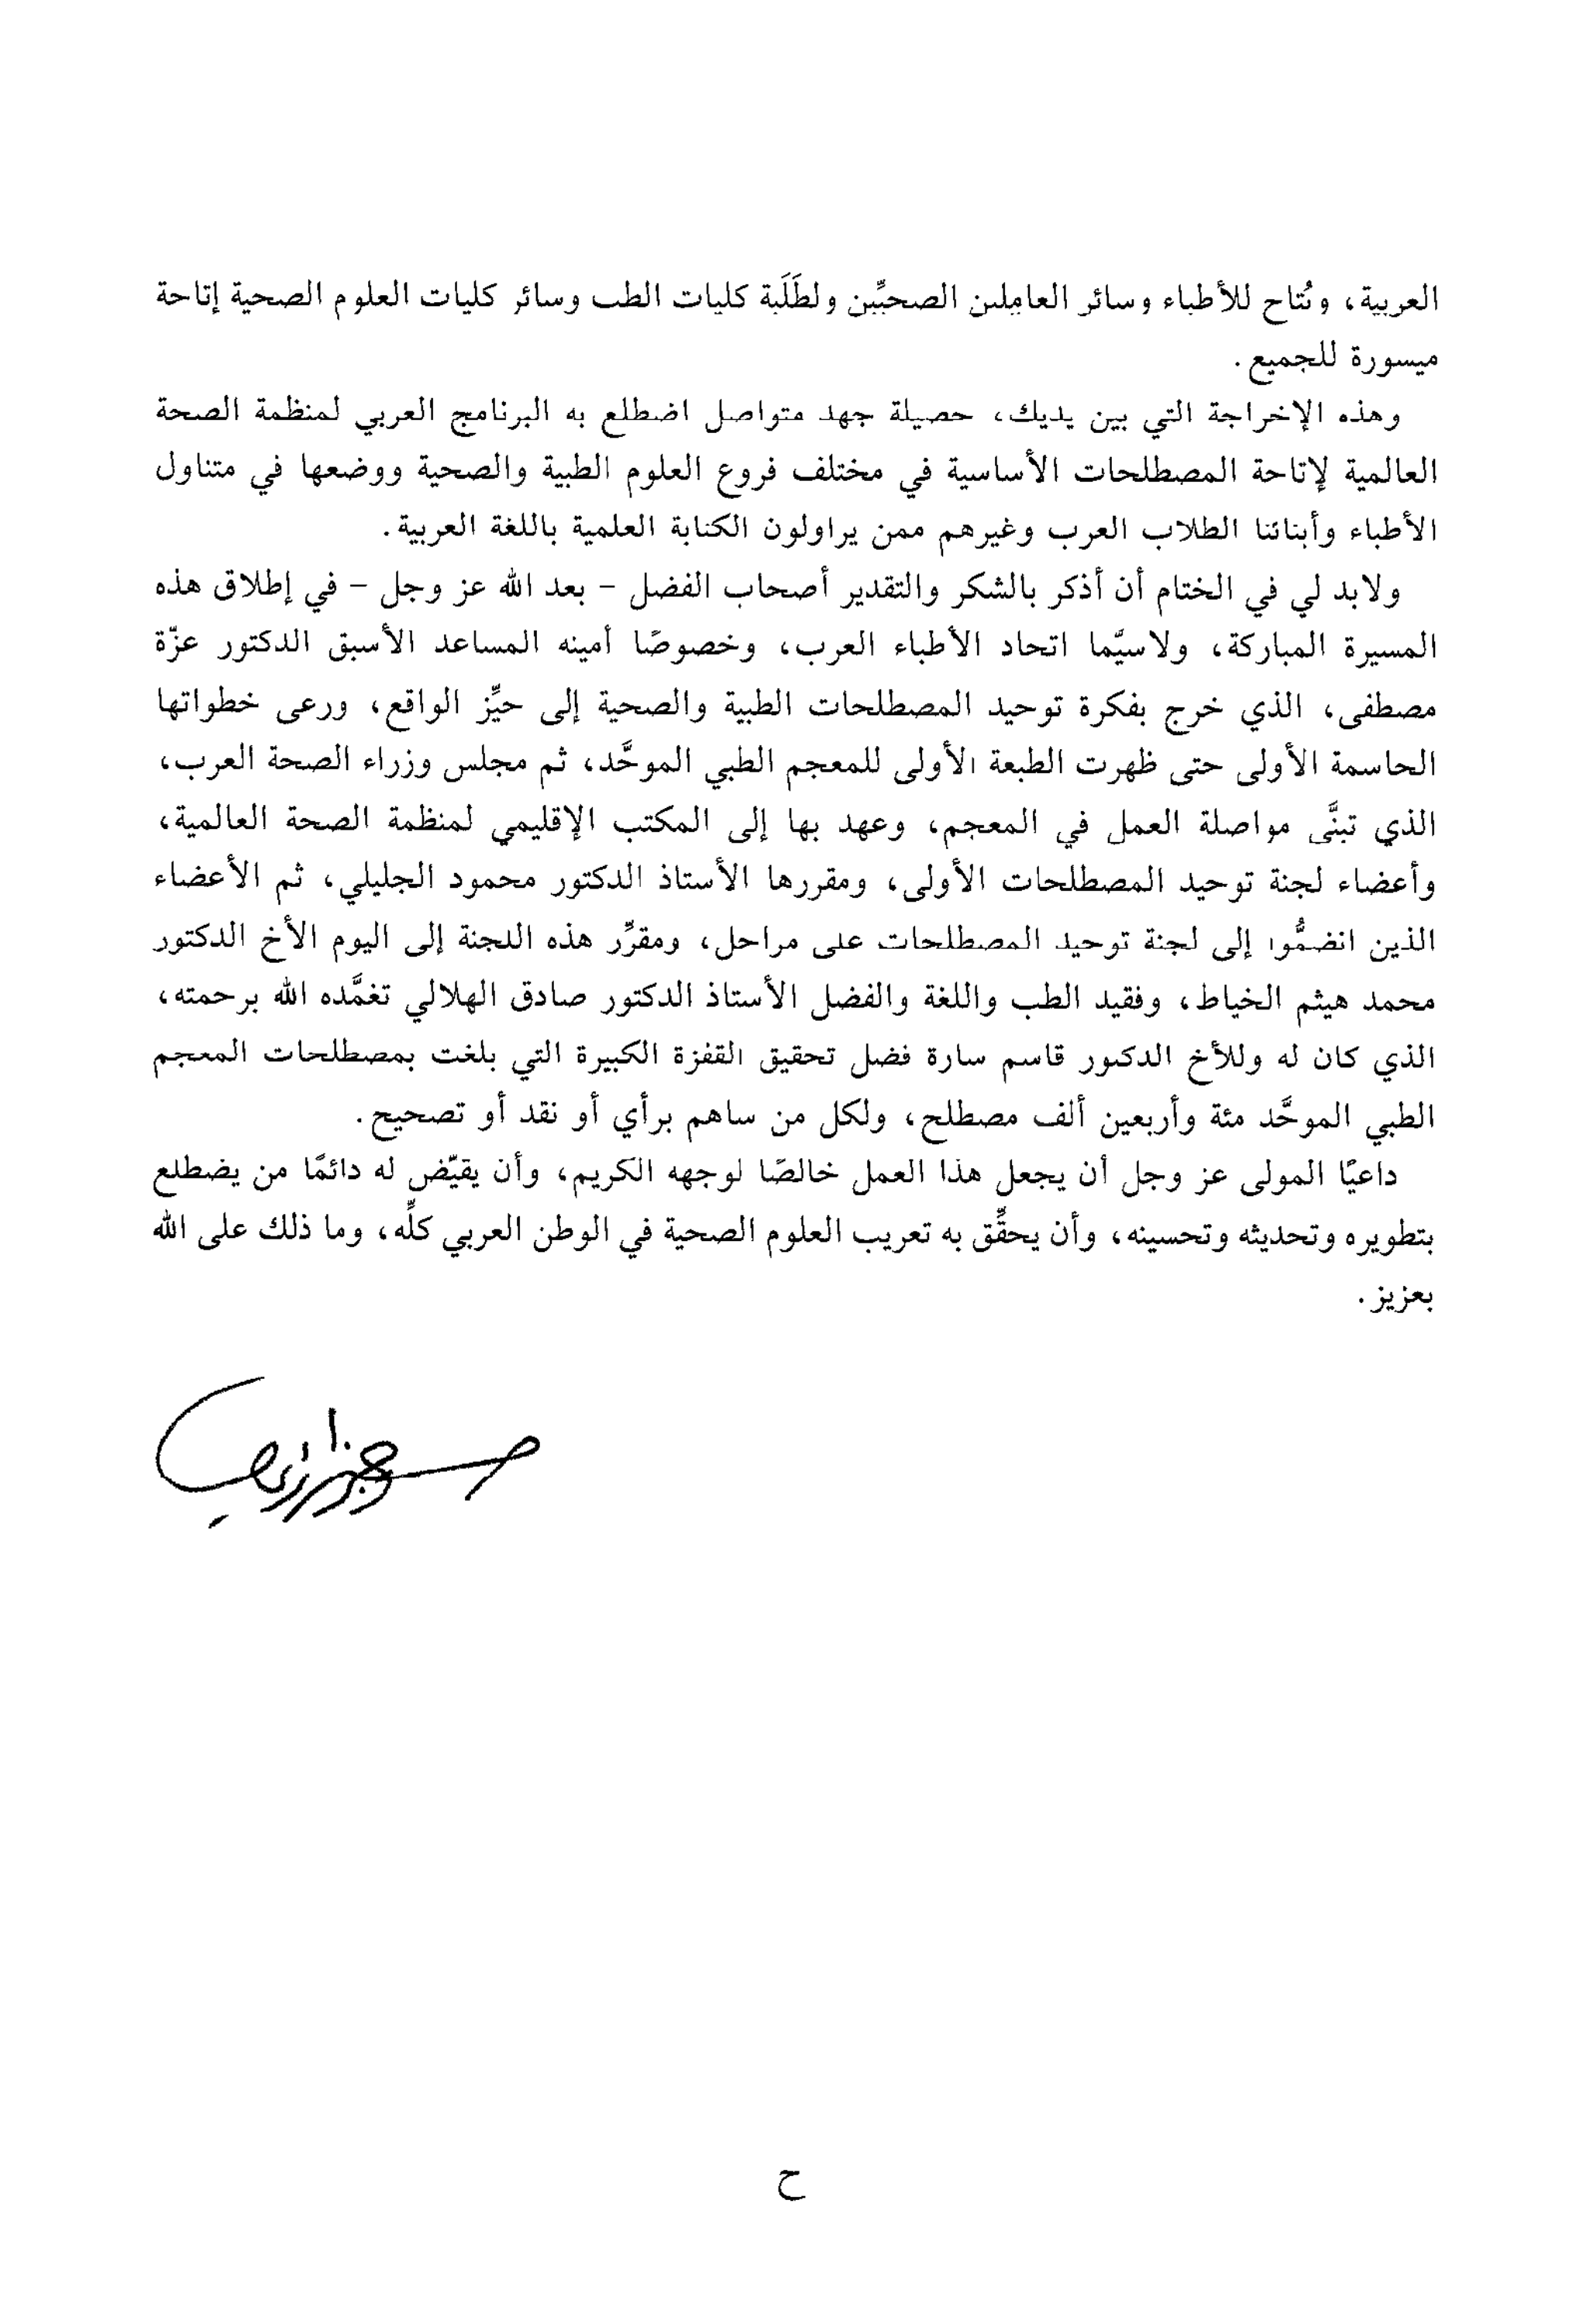 العربية، وتُتاح للأطباء وسائر العاملين الصحيِّين ولطَلَبة كليات الطب وسائر كليات العلوم الصحية إتاحة
ميسورة للجميع.
وهذه الإخراجة التي بين يديك، حصيلة جهد متواصل اضطلع به البرنامج العربي لمنظمة الصحة
العالمية لإتاحة المصطلحات الأساسية في مختلف فروع العلوم الطبية والصحية ووضعها في متناول
الأطباء وأبنائنا الطلاب العرب وغيرهم ممن يزاولون الكتابة العلمية باللغة العربية.
ولابد لي في الختام أن أذكر بالشكر والتقدير أصحاب الفضل – بعد الله عز وجل – في إطلاق هذه
المسيرة المباركة، ولاسيَّما اتحاد الأطباء العرب، وخصوصًا أمينه المساعد الأسبق الدكتور عزّة
مصطفى، الذي خرج بفكرة توحيد المصطلحات الطبية والصحية إلى حيِّز الواقع، ورعى خطواتها
الحاسمة الأولى حتى ظهرت الطبعة الأولى للمعجم الطبي الموحَّد، ثم مجلس وزراء الصحة العرب،
الذي تبنَّى مواصلة العمل في المعجم، وعهد بها إلى المكتب الإقليمي لمنظمة الصحة العالمية،
وأعضاء لجنة توحيد المصطلحات الأولى، ومقررها الأستاذ الدكتور محمود الجليلي، ثم الأعضاء
الذين انضمُّوا إلى لجنة توحيد المصطلحات على مراحل، ومقرِّر هذه اللجنة إلى اليوم الأخ الدكتور
محمد هيثم الخياط، وفقيد الطب واللغة والفضل الأستاذ الدكتور صادق الهلالي تغمَّده الله برحمته،
الذي كان له وللأخ الدكتور قاسم سارة فضل تحقيق القفزة الكبيرة التي بلغت بمصطلحات المعجم
الطبي الموحَّد مئة وأربعين ألف مصطلح، ولكل من ساهم برأي أو نقد أو تصحيح.
داعيًا المولى عز وجل أن يجعل هذا العمل خالصًا لوجهه الكريم، وأن يقيّض له دائمًا من يضطلع
بتطويره وتحديثه وتحسينه، وأن يحقِّق به تعريب العلوم الصحية في الوطن العربي كلِّه، وما ذلك على الله
بعزيز.
ح